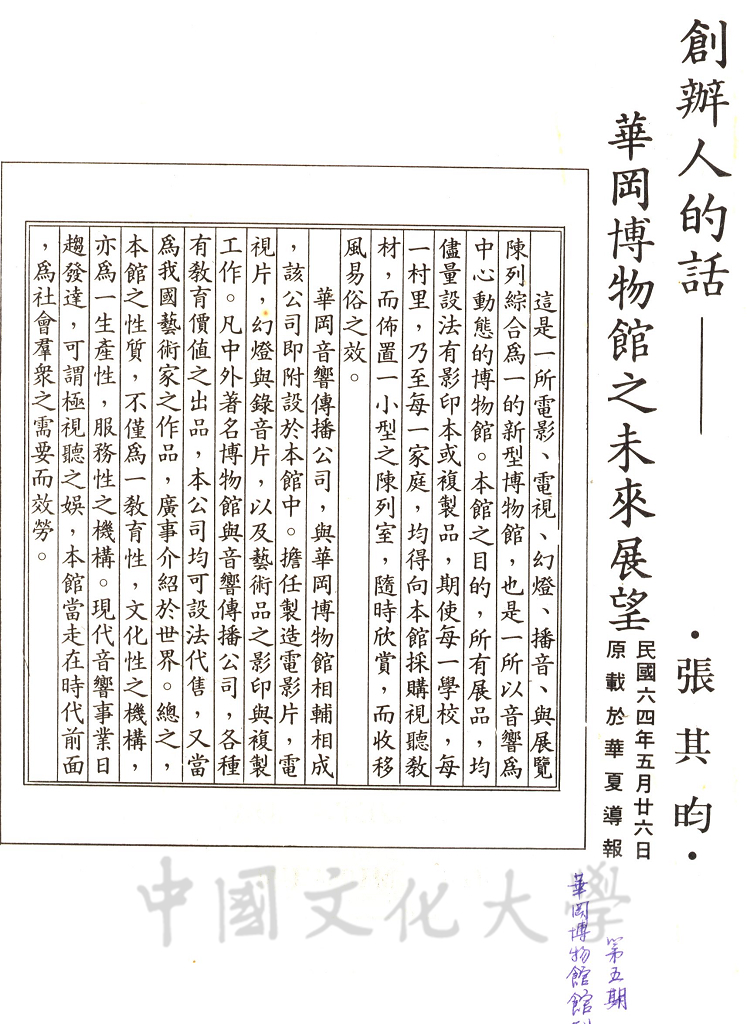 創辦人的話——
華岡博物館之未來展望
・張其昀・
民國六四年五月廿六日
原載於華夏導報
這是一所電影、電視、幻燈、播音、與展覽
陳列綜合為一的新型博物館，也是一所以音響為
中心動態的博物館。本館之目的，所有展品，均
儘量設法有影印本或複製品，期使每一學校，每
一村里，乃至每一家庭，均得向本館採購視聽教
材，而佈置一小型之陳列室，隨時欣賞，而收移
風易俗之效。
華岡音響傳播公司，與華岡博物館相輔相成
，該公司即附設於本館中。擔任製造電影片，電
視片，幻燈與錄音片，以及藝術品之影印與複製
工作。凡中外著名博物館與音響傳播公司，各種
有教育價值之出品，本公司均可設法代售，又當
為我國藝術家之作品，廣事介紹於世界。總之，
本館之性質，不僅為一教育性，文化性之機構，
亦為一生產性，服務性之機構。現代音響事業日
趨發達，可謂極視聽之娛，本館當走在時代前面
，為社會羣衆之需要而效勞。
中國文化大學
第五期
華岡博物館館